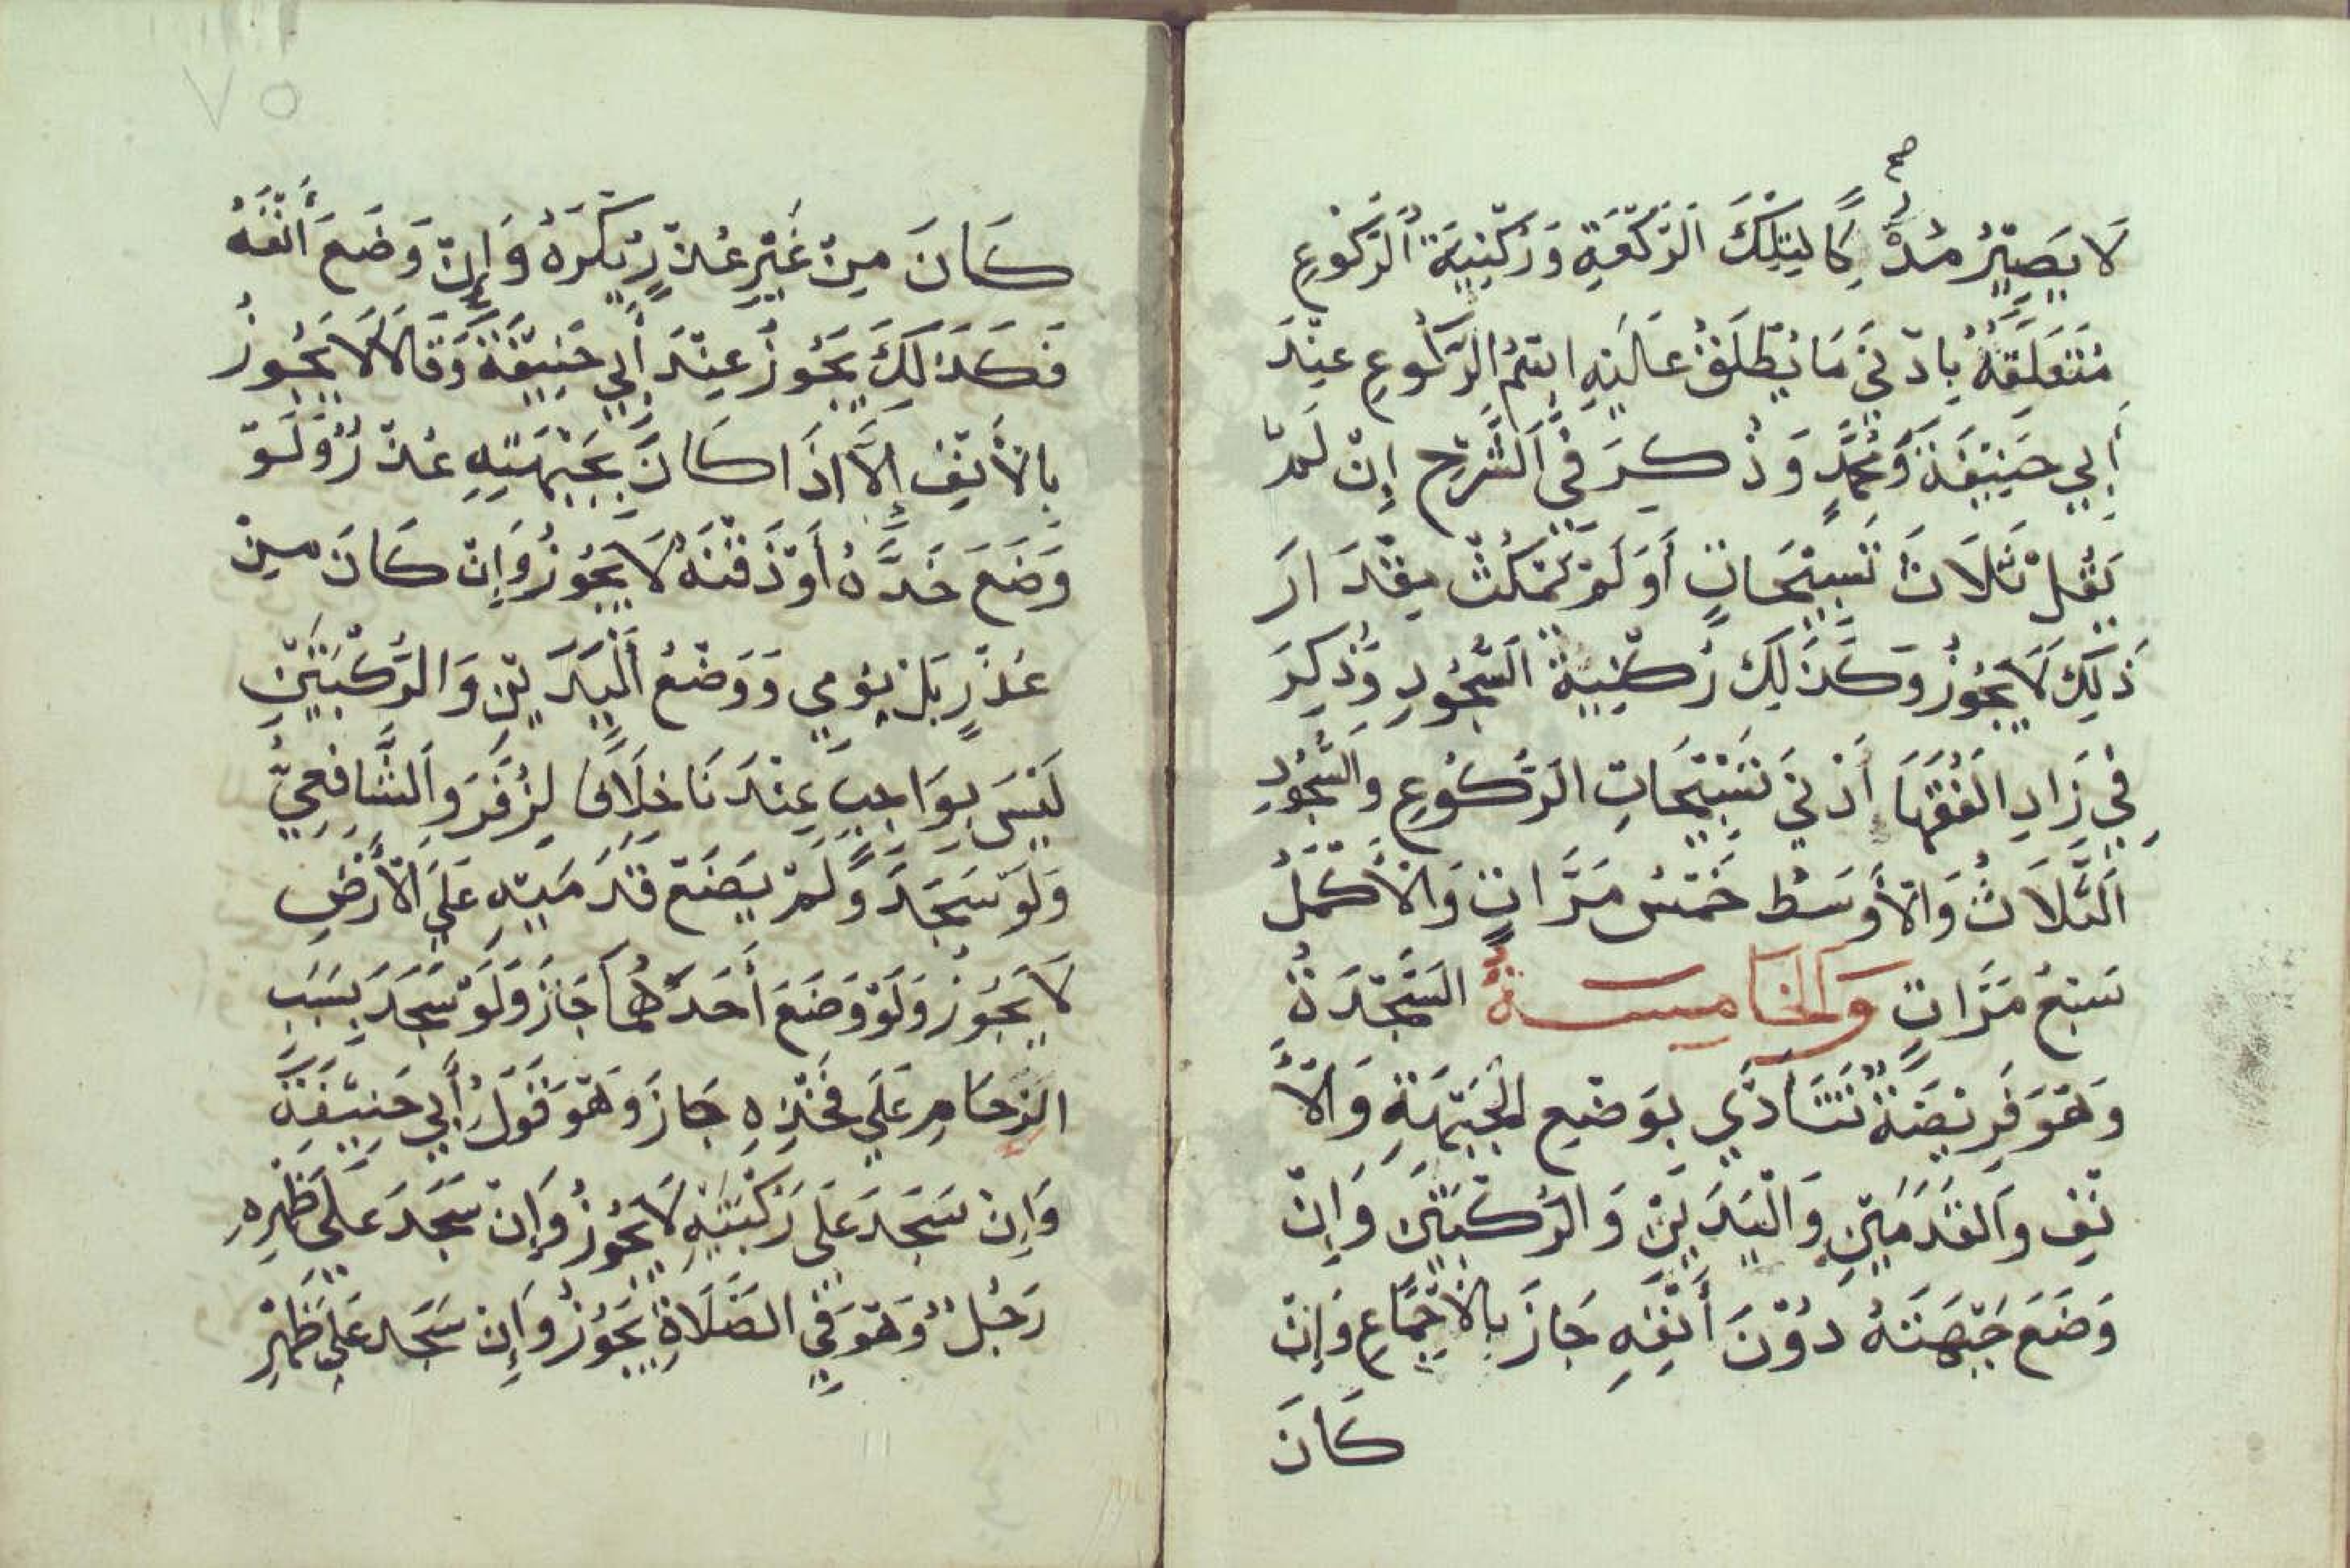 لَا يَصِيْرُ مُدْرِكًا لِتِلْكَ الرَّكْعَةِ وَرُكْنِيَةُ الرُّكُوْعِ
مُتَعَلِّقَةٌ بِادْنَي مَا يُطْلَقُ عَلَيْهِ اسْمُ الرُّكُوعِ عِنْدَ
أَبِي حَنِيْفَةَ وَمُحَمَّدٍ وَذُكِرَ فِي الشَّرْحِ إِنْ لَمْ
يَقُلْ ثَلَاثَ تَسْبِيْحَاتٍ أَوَلَمْ يَمْكُثْ مِقْدَارَ
ذَلِكَ لَا يَجُوْزُ وَكَذَلِكَ رُكْنِيَةُ السُّجُوْدِ وَذُكِرَ
فِي زَادِ الْفُقَهَا أَدْنَي تَسْبِيْحَاتِ الرُّكُوْعِ وَالسُّجُوْدِ
الثَّلَاثُ وَالْأَوْسَطُ خَمْسُ مَرَّاتٍ وَالْأَكْمَلُ
سَبْعُ مَرَّاتٍ وَالْخَامِسَةُ السَّجْدَةُ
وَهُوَ فَرِيْضَةٌ تَتَأَدَّي بِوَضْعِ الْجَبْهَةِ وَالْأَ
نْفِ وَالْقَدَمَيْنِ وَالْيَدَيْنِ وَالرُّكْبَتَيْنِ وَإِنْ
وَضَعَ جَبْهَتَهُ دُوْنَ أَنْفِهِ جَازَ بِالْإِجْمَاعِ وَإِنْ
كَانَ
٧٥
كَانَ مِنْ غَيْرِ عُذْرٍ يُكْرَهُ وَإِنْ وَضَعَ أَنْفَهُ
فَكَذَلِكَ يَجُوْزُ عِنْدَ أَبِي حَنِيْفَةَ وَقَالَا لَا يَجُوْزُ
بِالْأَنْفِ إِلَّا اذَا كَانَ بِجَبْهَتِهِ عُذْرٌ وَلَوْ
وَضَعَ خَدَّهُ أَوْ ذَقْنَهُ لَا يَجُوْزُ وَإِنْ كَانَ مِنْ
عُذْرٍ بَلْ يُوْمِي وَوَضْعُ الْيَدَيْنِ وَالرُّكْبَتَيْنِ
لَيْسَ بِوَاجِبٍ عِنْدَنَا خِلَافًا لِزُفَرَ وَالشَّافِعِيِّ
وَلَوْ سَجَدَ وَلَمْ يَضَعْ قَدَمَيْهِ عَلَي الْأَرْضِ
لَا يَجُوْزُ وَلَوْ وَضَعَ أَحَدَهُمَا جَازَ وَلَوْ سَجَدَ بِسَبَبِ
الزِّحَامِ عَلَي فَخْذِهِ جَازَ وَهُوَ قَوْلُ أَبِي حَنِيْفَةَ
وَإِنْ سَجَدَ عَلَى رُكْبَتَيْهِ لَا يَجُوْزُ وَإِنْ سَجَدَ عَلَى ظَهْرِهِ
رَجُلٌ وَهُوَ فِي الصَّلَاةِ يَجُوْزُ وَإِنْ سَجَد عَلَى ظَهْرِ